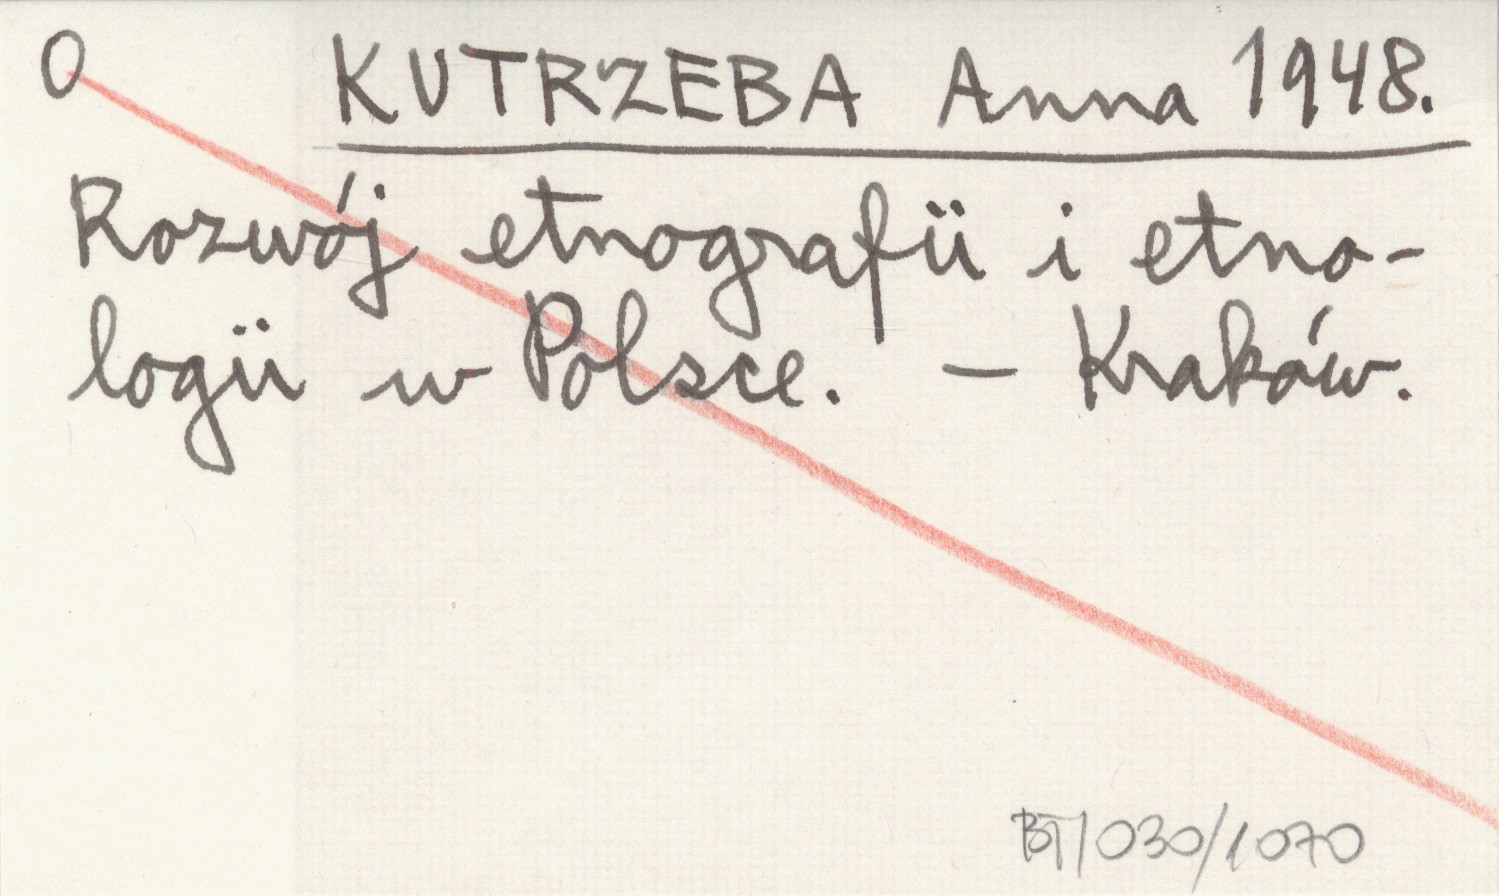 O KUTRZEBA Anna 1948.
Rozwój etnografii i etno-
logii w Polsce. – Kraków.
BT/030/1070